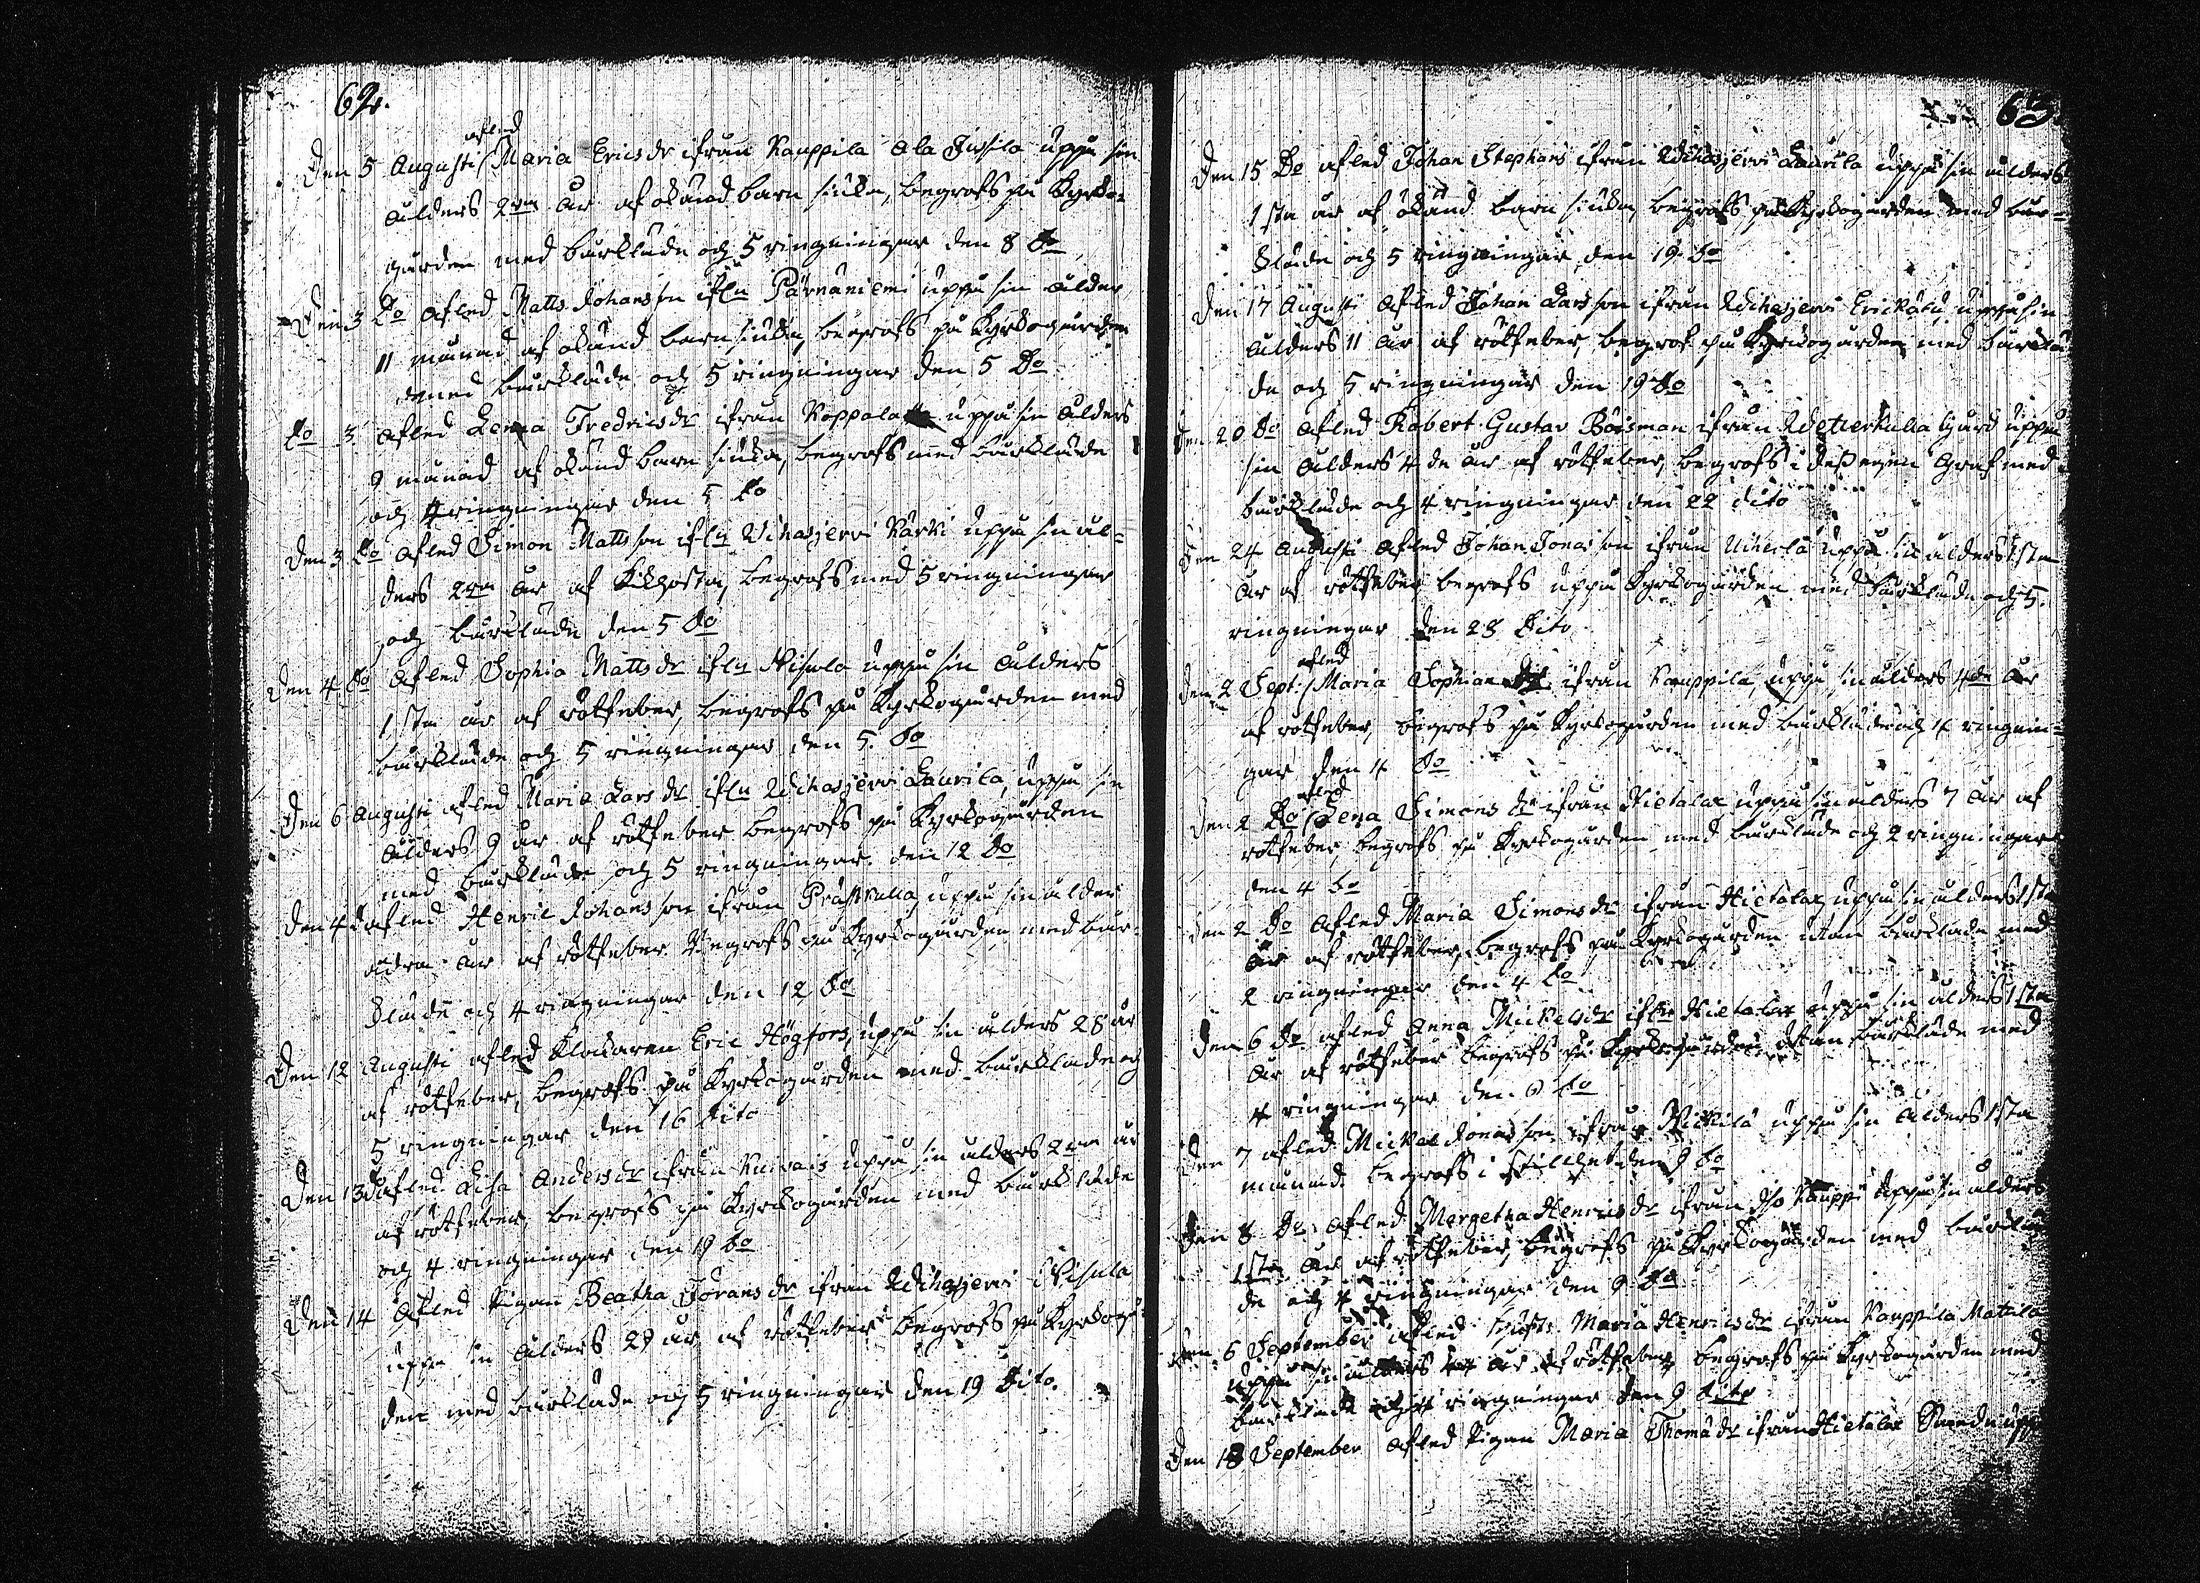 62.
afled
Den 5 Augusti Maria Ericsdr ifrån Kauppila Ala Jussila uppå sin
ålders 2dra år af okänd barn siuka, begrofs på Kyrko-
gården med bårkläde och 5 ringningar den 8 do
Den 3 Do afled Matts Johansson ifrån Pärnäniemi uppå sin ålder
11 månad af okänd barn siuka, begrofs på Kyrkogården
med bårkläde och 5 ringningar den 5 Do
Do 3 afled Lena Fredricsdr ifrån Koppala uppå sin ålders
9 månad af okänd barn siuka, begrofs med bårkläde
och 4 ringningar den 5 do
Den 3 Do afled Simon Mattsson ifrån Wihasjervi Kärki uppå sin ål-
ders 2dra år af Kikhosta, begrofs med 5 ringningar
och bårkläde den 5 do
Den 4 do afled Sophia Mattsdr ifrån uppå sin ålders
1sta år af rötfeber, begrofs på Kyrkogården med
bårkläde och 5 ringningar den 5. do
Den 6 Augusti afled Maria Larsdr ifrån Wihasjervi Laurila, uppå sin
ålders 9 år af rötfeber begrofs på Kyrkogården
med bårkläde och 5 ringningar den 12 do
Den 4 afled Henric Johansson ifrån Prästkulla, uppå sin ålder
andra år af rötfeber begrofs på Kyrkogården med bår-
kläde och 4 ringningar den 12 do
Den 12 Augusti afled Klockaren Eric Högfors, uppå sin ålders 28 år
af rötfeber, begrofs på Kyrkogården med bårkläde och
5 ringningar den 16 dito
Den 13 afled Lisa Andersdr ifrån uppå sin ålders 2dra år
af rötfeber begrofs på Kyrkogården med bårkläde
och 4 ringningar den 19 do
Den 14 afled Pigan Beatha Göransdr ifrån Wihasjervi
uppå sin ålders 29 år af rötfeber begrofs på Kyrkogår
den med bårkläde och 5 ringningar den 19 dito.
63
Den 15 Do afled Johan Stephans ifrån Wihasjervi Laurila uppå sin ålders
1sta år af okänd barn siuka, begrofs på Kyrkogården med bår-
kläde och 5 ringningar den 19. do
Den 17 Augusti afled Johan Larsson ifrån Wihasjervi Erickala, uppå sin
ålders 11 år af rötfeber, begrof på Kyrkogården med bårklä
de och 5 ringningar den 19 do
Den 20 do afled Robert Gustav Böisman ifrån Wetterkulla Gård uppå
sin ålders 4de år af rötfeber, begrofs i dess egen Graf med
bårkläde och 4 ringningar den 22 dito
Den 24 Augusti afled Johan Jonasson ifrån uppå sin ålders 1sta
år af rötfeber begrofs uppå Kyrkogården med bårkläde och 5
ringningar den 28 dito
afled
Den 2 Sept: Maria Sophia ifrån Kauppila, uppå sin ålders 4de år
af rötfeber, begrofs på Kyrkogården med bårkläde och 4 ringnin-
gar den 4 do
afled
Den 2 Do Lena Simonsdr ifrån Hietalax uppå sin ålders 7 år af
rötfeber, begrofs på Kyrkogården med bårkläde och 2 ringningar
den 4 do
Den 2 Do afled Maria Simonsdr ifrån Hietalax, uppå sin ålders 1sta
år af rötfeber, begrofs på Kyrkogården utan bårkläde med
2 ringningar den 4 do
Den 6 Do afled Anna Mickelsdr ifrån Hietalax uppå sin ålders 1sta
år af rötfeber begrofs på Kyrkogården utan bårkläde med
4 ringningar den 9 do
Den 7 afled Mickel Jonasson ifrån uppå sin ålders 1sta
månad begrofs i stillhet den 9 do
Den 8 Do afled Margetha Henricsdr ifrån Kauppi uppå sin ålders
1sta år af rötfeber, begrofs på Kyrkogården med bårklä
de och 4 ringningar den 9 do
Den 6 September afled Maria Henricsdr ifrån Kauppila Matila
uppå sin ålders år af rötfeber begrofs på Kyrkogården med
bårkläde och 4 ringningar den 9 dito
Den 18 September afled Pigan Maria Thomadr ifrån Hietalax uppå